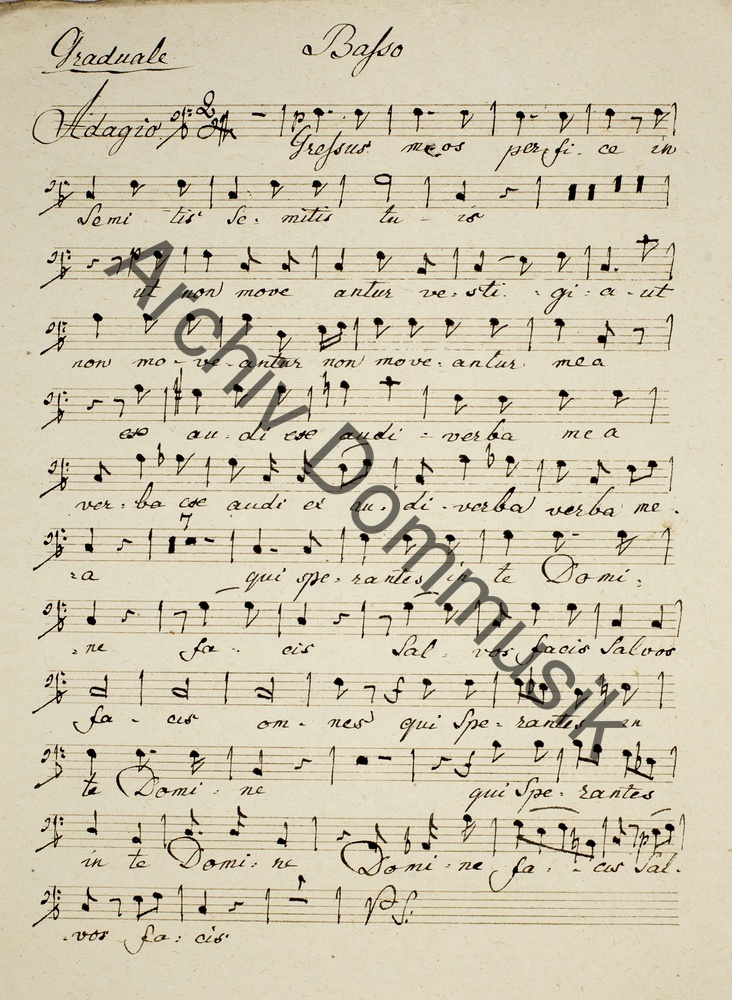 Graduale Basso
Adagio
Gressus meos per fi- ce in
Semi tis se- mitis tu - is
ut non move antur ve- sti- gi- a- ut
non mo- ve- antur non move- antur mea
ese au- di ese audi - verba mea
ver- ba ese audi es au- di- verba verba me-
7
-a qui spe- rantes in te Domi-
-ne fa- cis Sal- vos facis Salvos
fa- cis om- nes qui Spe- rantes in
te Domi- ne qui Spe- rantes
in te Domi- ne Domi- ne fa- - cis Sal-
-vos fa- cis
Archiv Dommusik